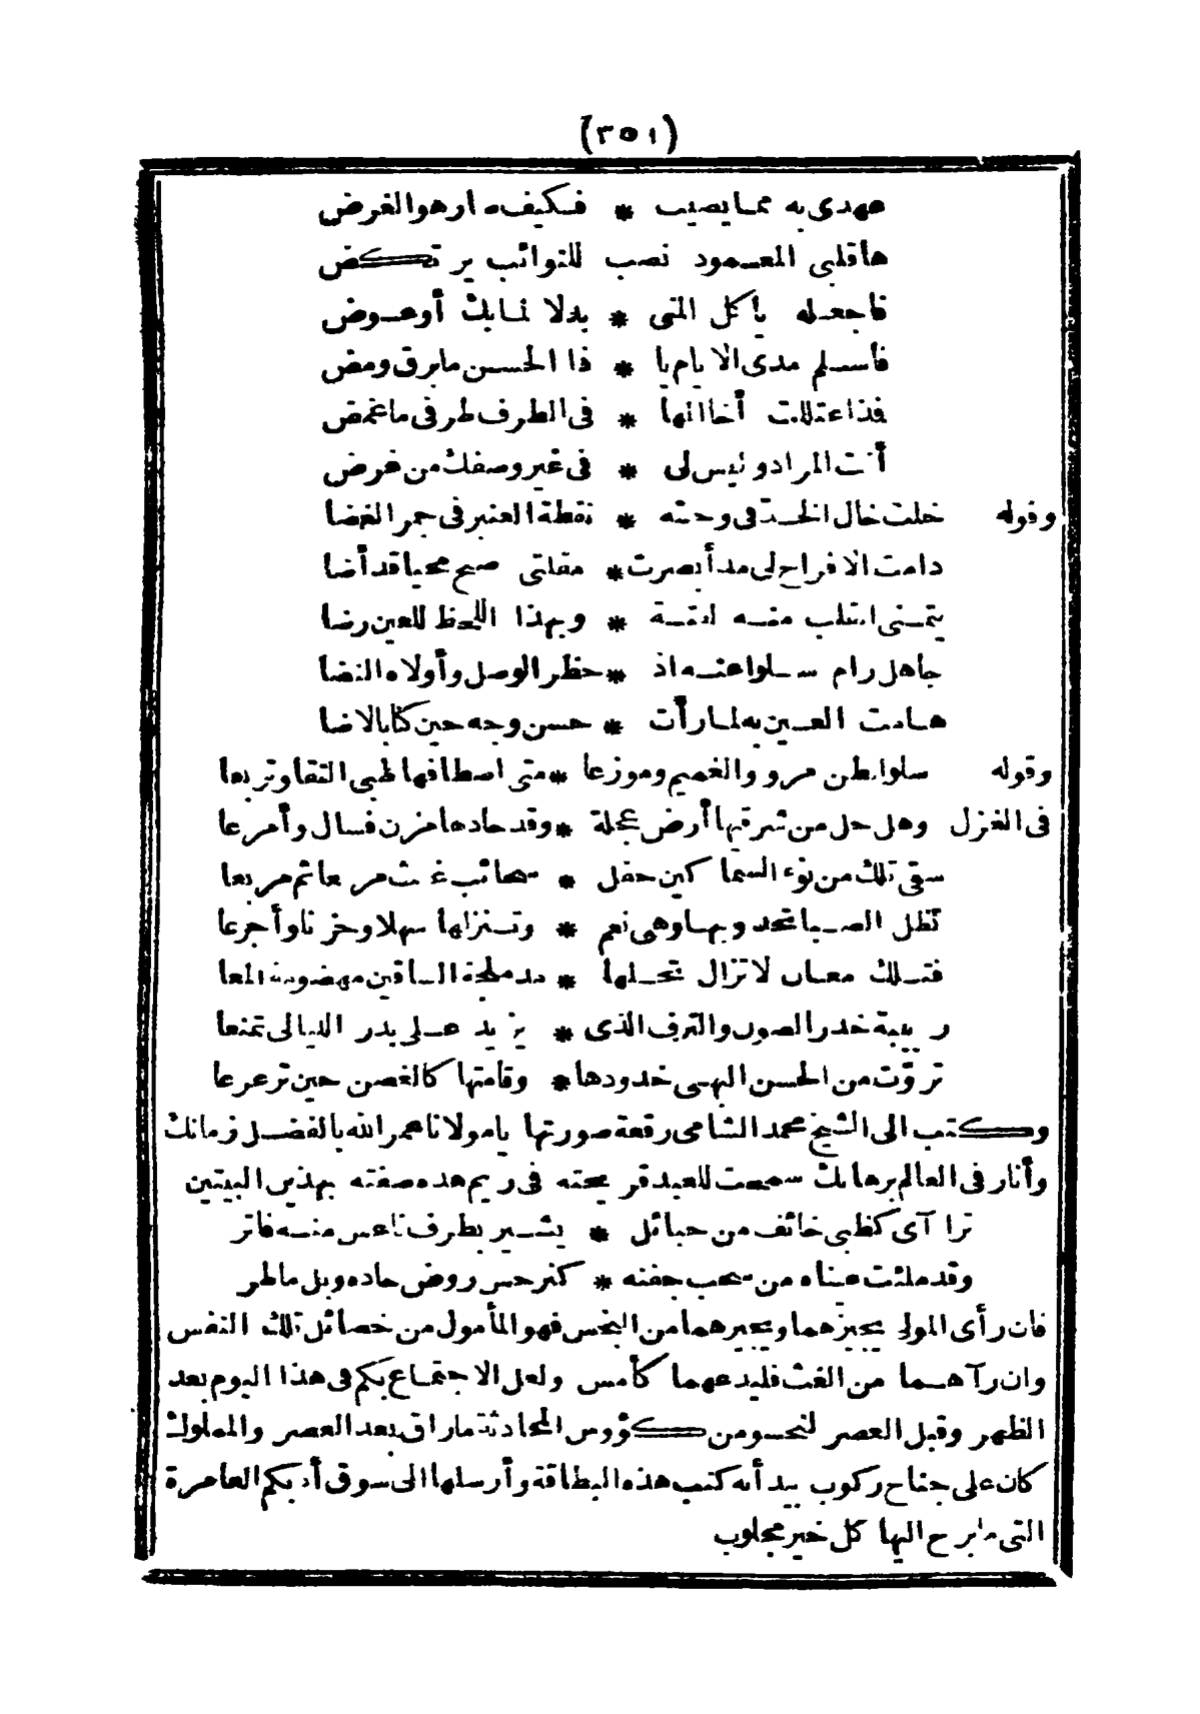 (٣٥١)
عهدى به مما يصيب * فكيف صار هو الغرض
ها قلبى المعمود نصب للنوائب يرتكض
فاجعله يا كل المنى * بدلا لما بك أو عوض
فاسلم مدى الايام يا * ذا الحسن ما برق ومض
فذا عتلات أخالنها * فى الطرف طرفى ما غمض
أنت المراد وليس لى * فى غير وصفك من غرض
وقوله خلت خال الخد فى وجنته * نقطة العنبر فى جمر الغضا
دامت الافراح لى مذ أبصرت * مقلتى صبح محيا قد أضا
يتمنى القلب منه لفتة * وبهذا اللحظ للعين رضا
جاهل رام سلوا عنه اذ * حظر الوصل وأولاه النضا
هامت العين به لما رأت * حسن وجه حين كنا بالاضا
وقوله سلوا بطن مرو والغميم وموزعا * متى اصطافها ظبى النقا وتربعا
فى الغزل وهل حل من شرقيها أرض عجلة * وقد جادها مزن فسال وأمرعا
سقى تلك من نوء السماكين حفل * سحائب غيث مربعا ثم مربعا
تظل الصبا تحدو بها وهى نعم * وتنزلها سهلا وحزنا وأجرعا
فتلك معان لا تزال تحلها * مدملجة الساقين مهضومة المعا
ربيبة خدر الصون والترف الذى * يزيد على بدر الليالى تمنعا
تروّت من الحسن البهى خدودها * وقامتها كالغصن حين ترعرعا
وكتب الى الشيخ محمد الشامى رقعة صورتها يا مولانا عمر الله بالفضل زمانك
وأنار فى العالم برهانك سمحت للعبد قريحته فى ريم هذه صفته بهذين البيتين
تراآى كظبى خائف من حبائل * يشير بطرف ناعس منه فاتر
وقد ملئت عيناه من سحب جفنه * كنرجس روض جاده وبل ماطر
فان رأى المولى يجيزهما ويجيرهما من البخس فهو المأمول من خصائل تلك النفس
وان رآهما من الغث فليدعهما كأمس ولعل الاجتماع بكم فى هذا اليوم بعد
الظهر وقبل العصر لنحسو من كؤوس المحادثة ما راق بعد العصر والمملوك
كان على جناح ركوب بيد أنه كتب هذه البطاقة وأرسلها الى سوق أدبكم العامرة
التى ما برح اليها كل خير مجلوب